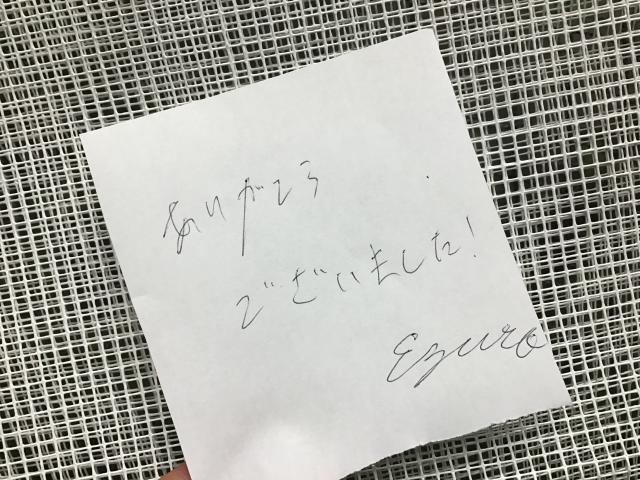 ありがとう
ございました!
Ezuro